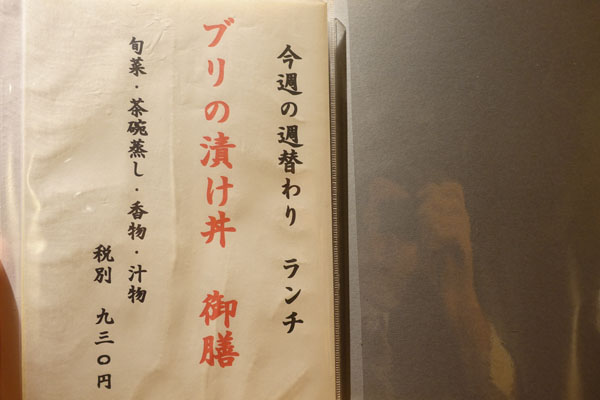 今週の週替わり ランチ
ブリの漬け丼 御膳
旬菜・茶碗蒸し・香物・汁物
税別 九三〇円